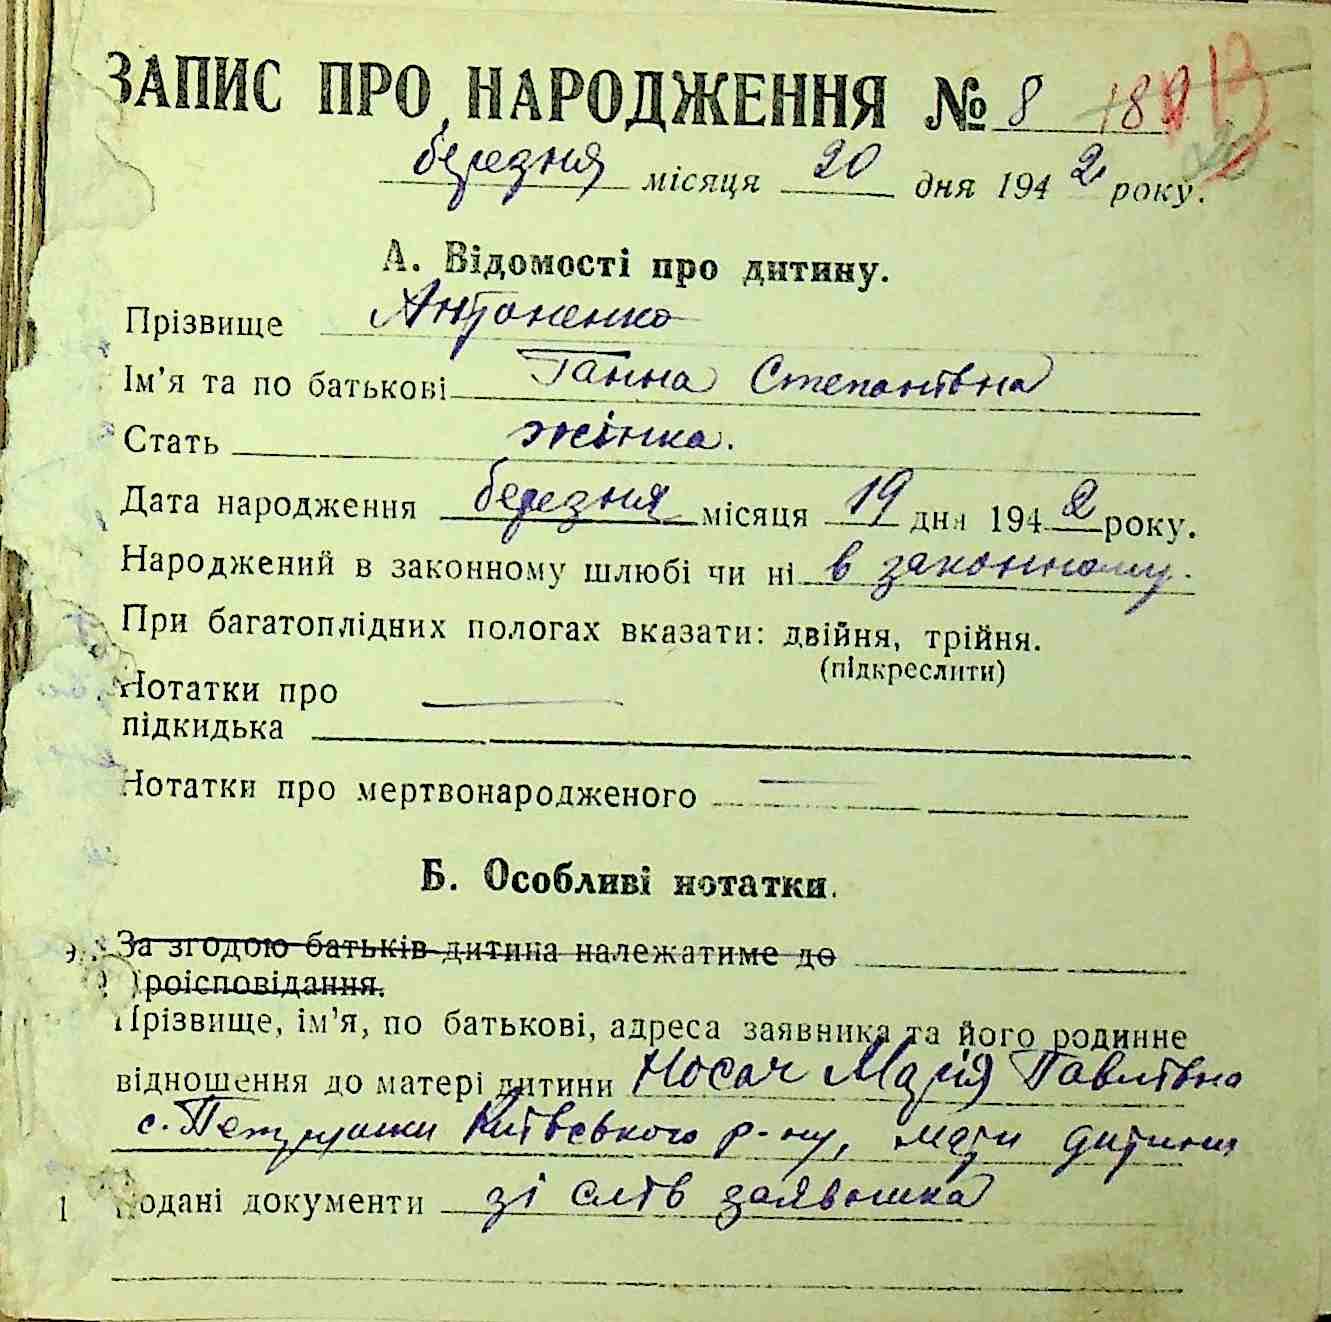 ЗАПИС ПРО НАРОДЖЕННЯ № 8 189 13
березня місяця 20 дня 1942 року.
А. Відомості про дитину.
Прізвище Антоненко
Ім'я та по батькові Ганна Степанівна
Стать жінка.
Дата народження березня місяця 19 дня 1942 року.
Народжений в законному шлюбі чи ні в законному.
При багатоплідних пологах вказати: двійня, трійня.
(підкреслити)
Нотатки про
підкидька
Нотатки про мертвонародженого
Б. Особливі нотатки.
За згодою батьків дитина належатиме до
віроісповідання.
Прізвище, ім'я, по батькові, адреса заявника та його родинне
відношення до матері дитини Носач Марія Павлівна
с. Петрушки Київського р-ну, мати дитини
Подані документи зі слів заявника